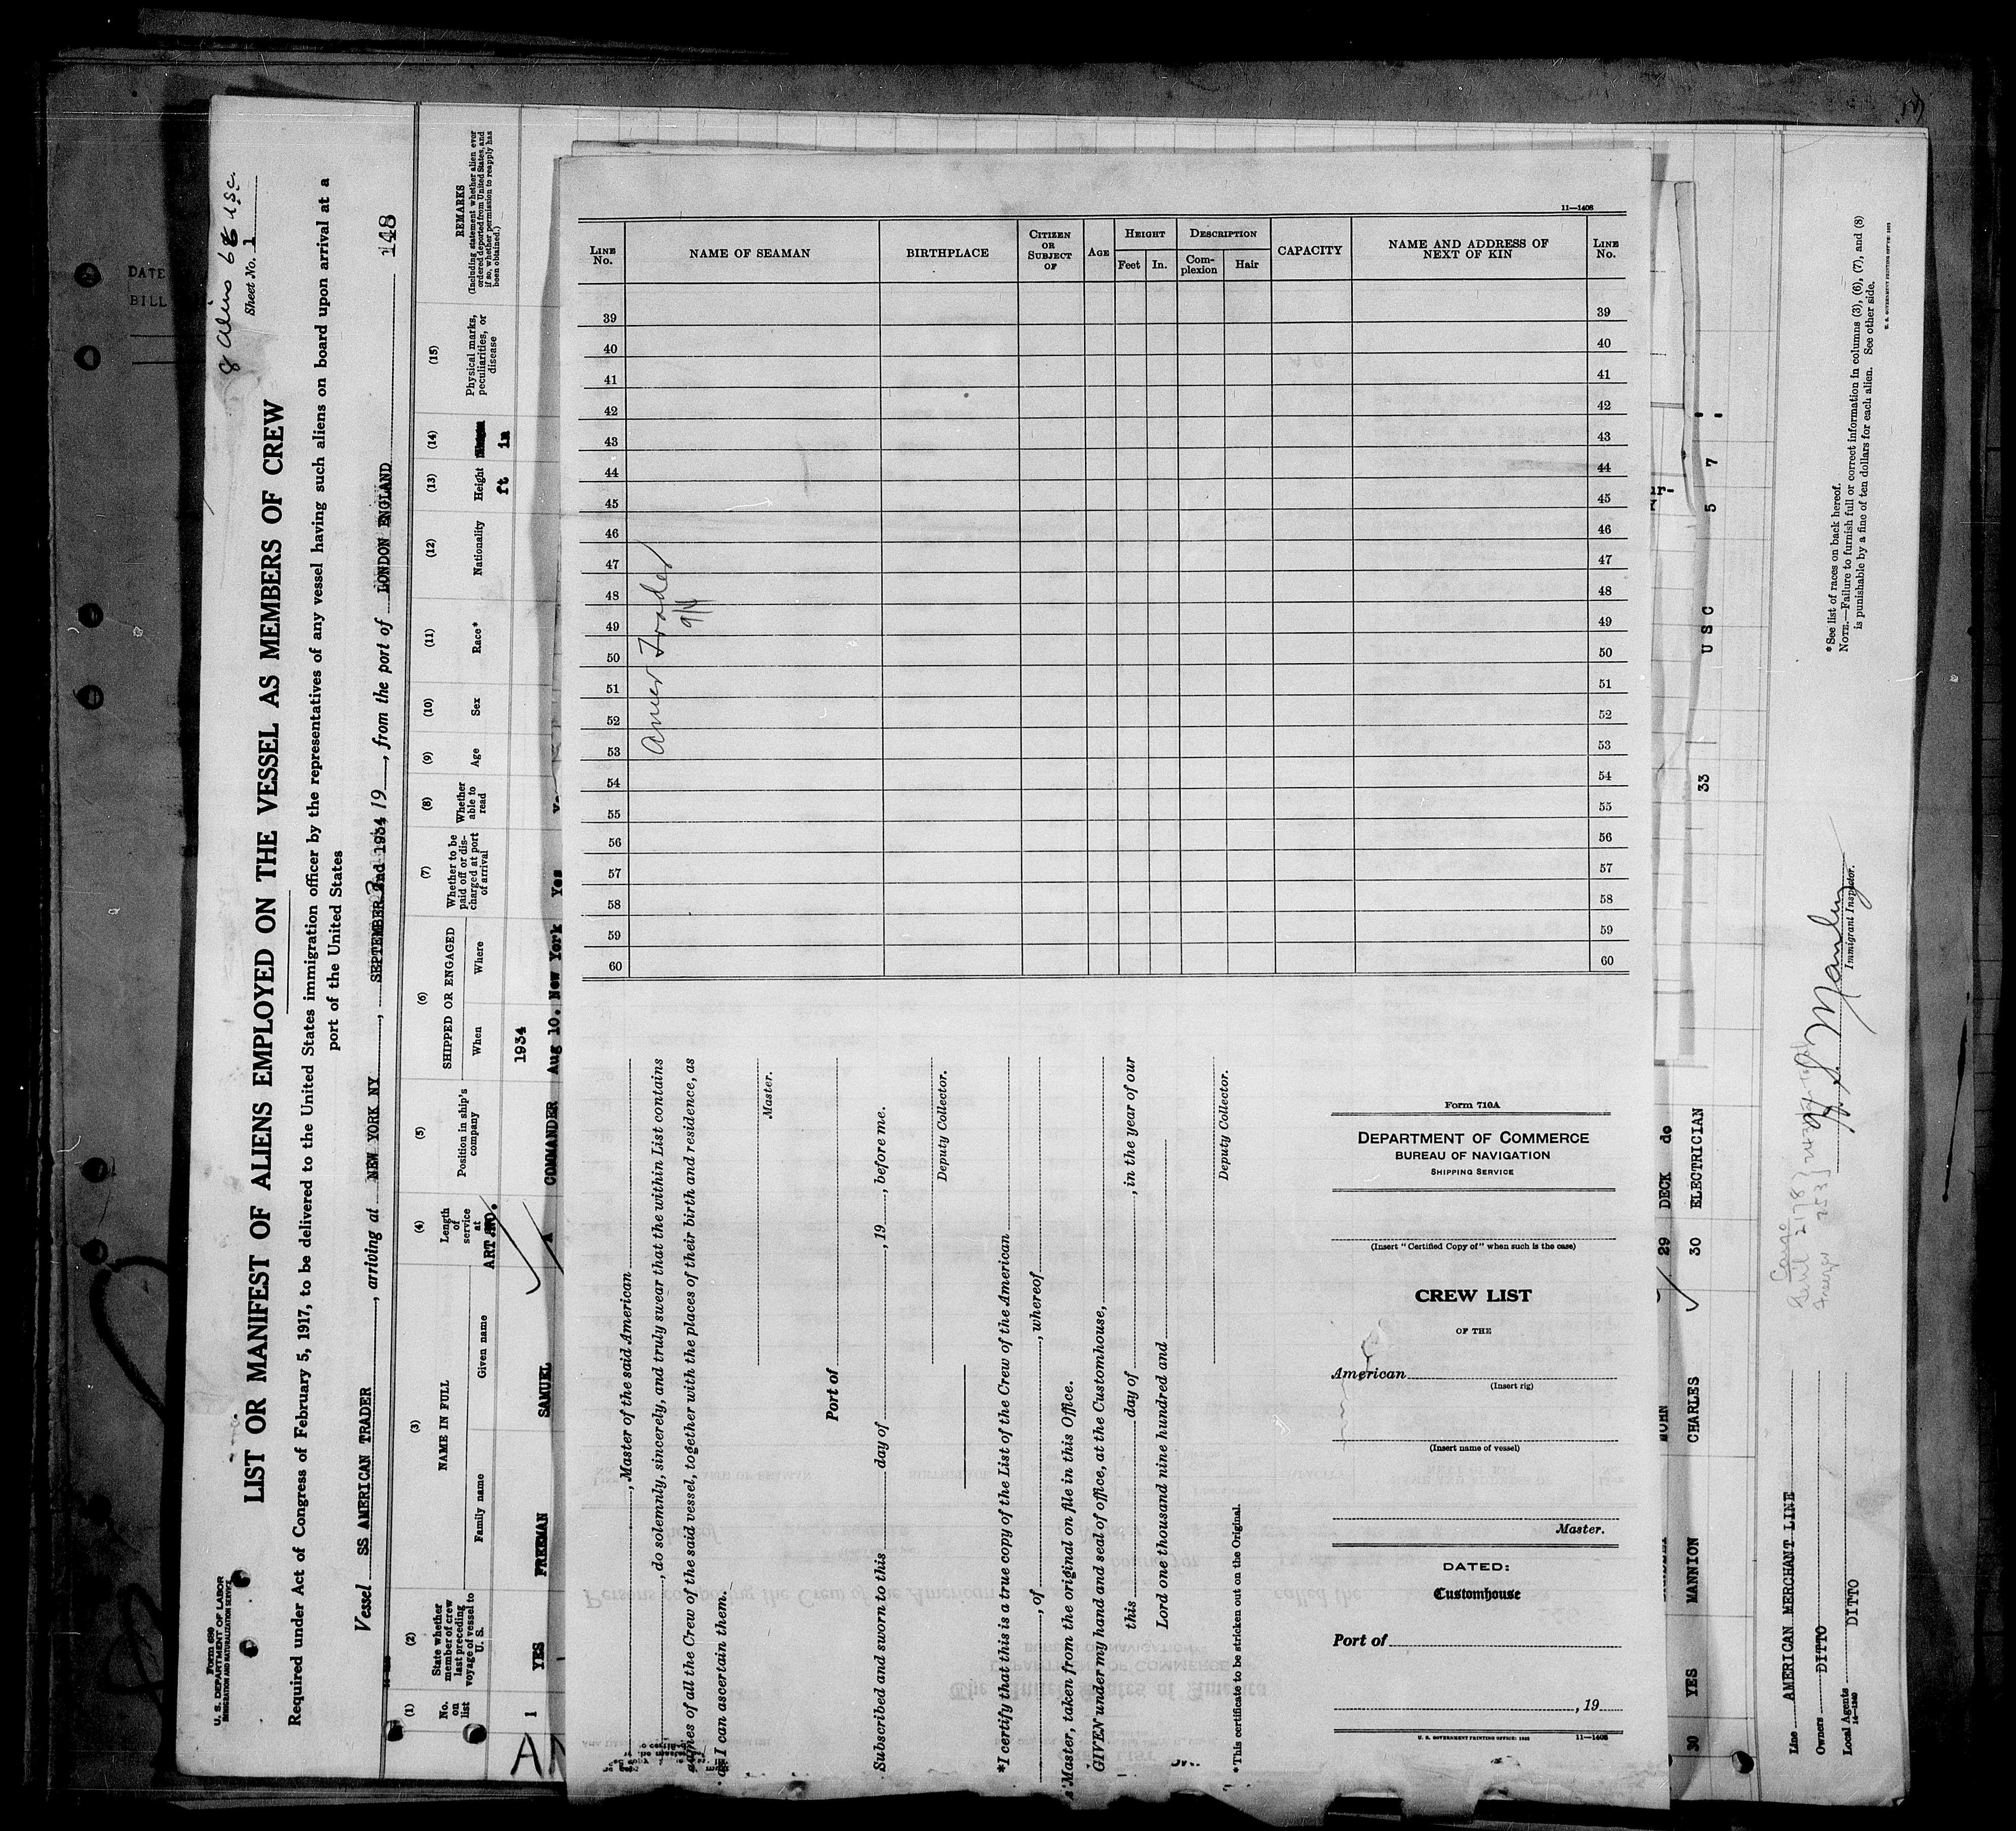 8 Aliens 68 U.S.C.
Sheet No. 1
Form 680
U. S. DEPARTMENT OF LABOR
IMMIGRATION AND NATURALIZATION SERVICE
LIST OR MANIFEST OF ALIENS EMPLOYED ON THE VESSEL AS MEMBERS OF CREW
Required under Act of Congress of February 5, 1917, to be delivered to the United States immigration officer by the representatives of any vessel having such aliens on board upon arrival at a
port of the United States
Vessel SS AMERICAN TRADER, arriving at NEW YORK NY, SEPTEMBER 2nd 1934 19, from the port of LONDON ENGLAND
148
(1) No. on list
(2) State whether member of crew last preceding voyage of vessel to U. S.
(3) NAME IN FULL
Family name
Given name
(4) Length of service at
(5) Position in ship's company
(6) SHIPPED OR ENGAGED
When
Where
(7) Whether to be paid off or discharged at port of arrival
(8) Whether able to read
(9) Age
(10) Sex
(11) Race*
(12) Nationality
(13) Height
ft
(14)
in
(15) Physical marks, peculiarities, or disease
REMARKS
(Including statement whether alien ever ordered deported from United States, and if so, whether permission to reapply has been obtained.)
1934
1 YES FREEMAN SAMUEL COMMANDER Aug 10. New York Yes
DATE
BILL
11—1408
LINE No.
NAME OF SEAMAN
BIRTHPLACE
CITIZEN OR SUBJECT OF
AGE
HEIGHT
Feet
In.
DESCRIPTION
Complexion
Hair
CAPACITY
NAME AND ADDRESS OF NEXT OF KIN
LINE No.
39 39
40 40
41 41
42 42
43 43
44 44
45 45
46 46
47 47
48 48
49 49
50 50
51 51
52 52
53 53
54 54
55 55
56 56
57 57
58 58
59 59
60 60
Amer Trader
, Master of the said American
, do solemnly, sincerely, and truly swear that the within List contains
names of all the Crew of the said vessel, together with the places of their birth and residence, as
I can ascertain them.
Master.
Port of
Subscribed and sworn to this day of , 19 , before me.
Deputy Collector.
*I certify that this is a true copy of the List of the Crew of the American
, of , whereof
Master, taken from the original on file in this Office.
GIVEN under my hand and seal of office, at the Customhouse,
this day of , in the year of our
Lord one thousand nine hundred and
Deputy Collector.
*This certificate to be stricken out on the Original.
Form 710A
DEPARTMENT OF COMMERCE
BUREAU OF NAVIGATION
SHIPPING SERVICE
(Insert "Certified Copy of" when such is the case)
CREW LIST
OF THE
American
(Insert rig)
(Insert name of vessel)
Master.
DATED:
Customhouse
Port of
, 19
U. S. GOVERNMENT PRINTING OFFICE: 1932 11—1408
29 DECK do
30 YES MANNION CHARLES 30 ELECTRICIAN 33 U S C 5 7
Line AMERICAN MERCHANT LINE
Owners DITTO
Local Agents DITTO
14—1240
Immigrant Inspector.
*See list of races on back hereof.
NOTE.—Failure to furnish full or correct information in columns (3), (6), (7), and (8)
is punishable by a fine of ten dollars for each alien. See other side.